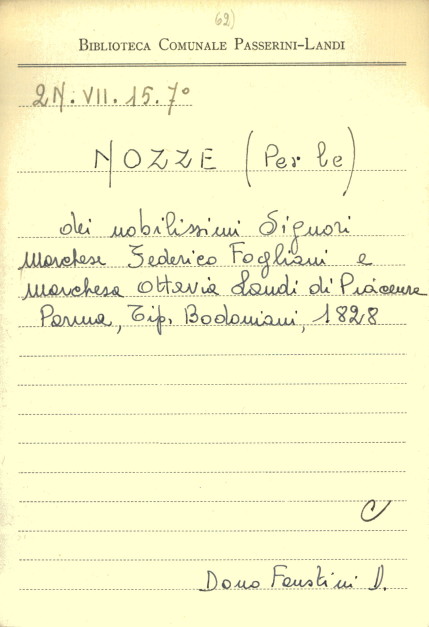 62)
BIBLIOTECA COMUNALE PASSERINI-LANDI
2N.VII.15.7°
NOZZE (Per le)
dei nobilissimi Signori
Marchese Federico Fogliani e
Marchesa Ottavia Landi di Piacenza
Parma, Tip. Bodoniani, 1828
C
Dono Faustini D.